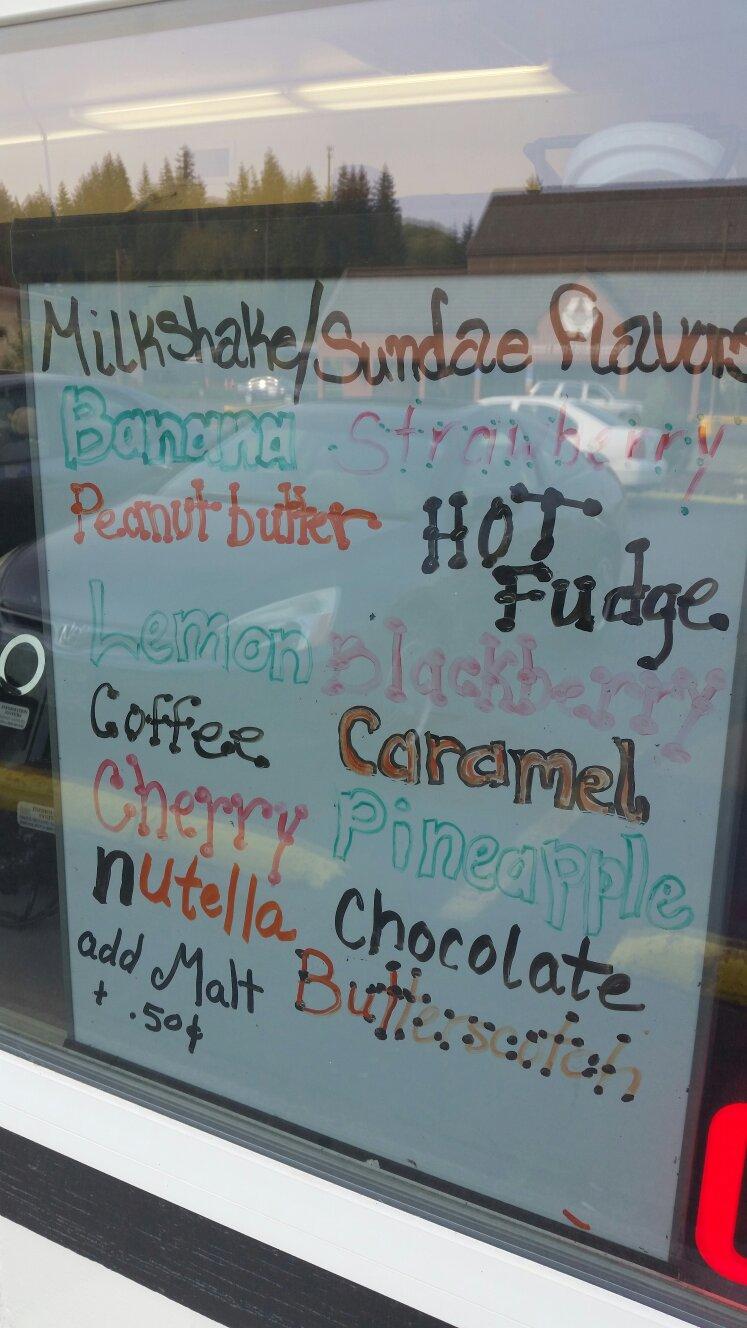 Milkshake/Sundae flavors
Banana Strawberry
Peanut butter HOT
Fudge
Lemon Blackberry
Coffee Caramel
Cherry Pineapple
nutella Chocolate
add Malt Butterscotch
+ .50¢